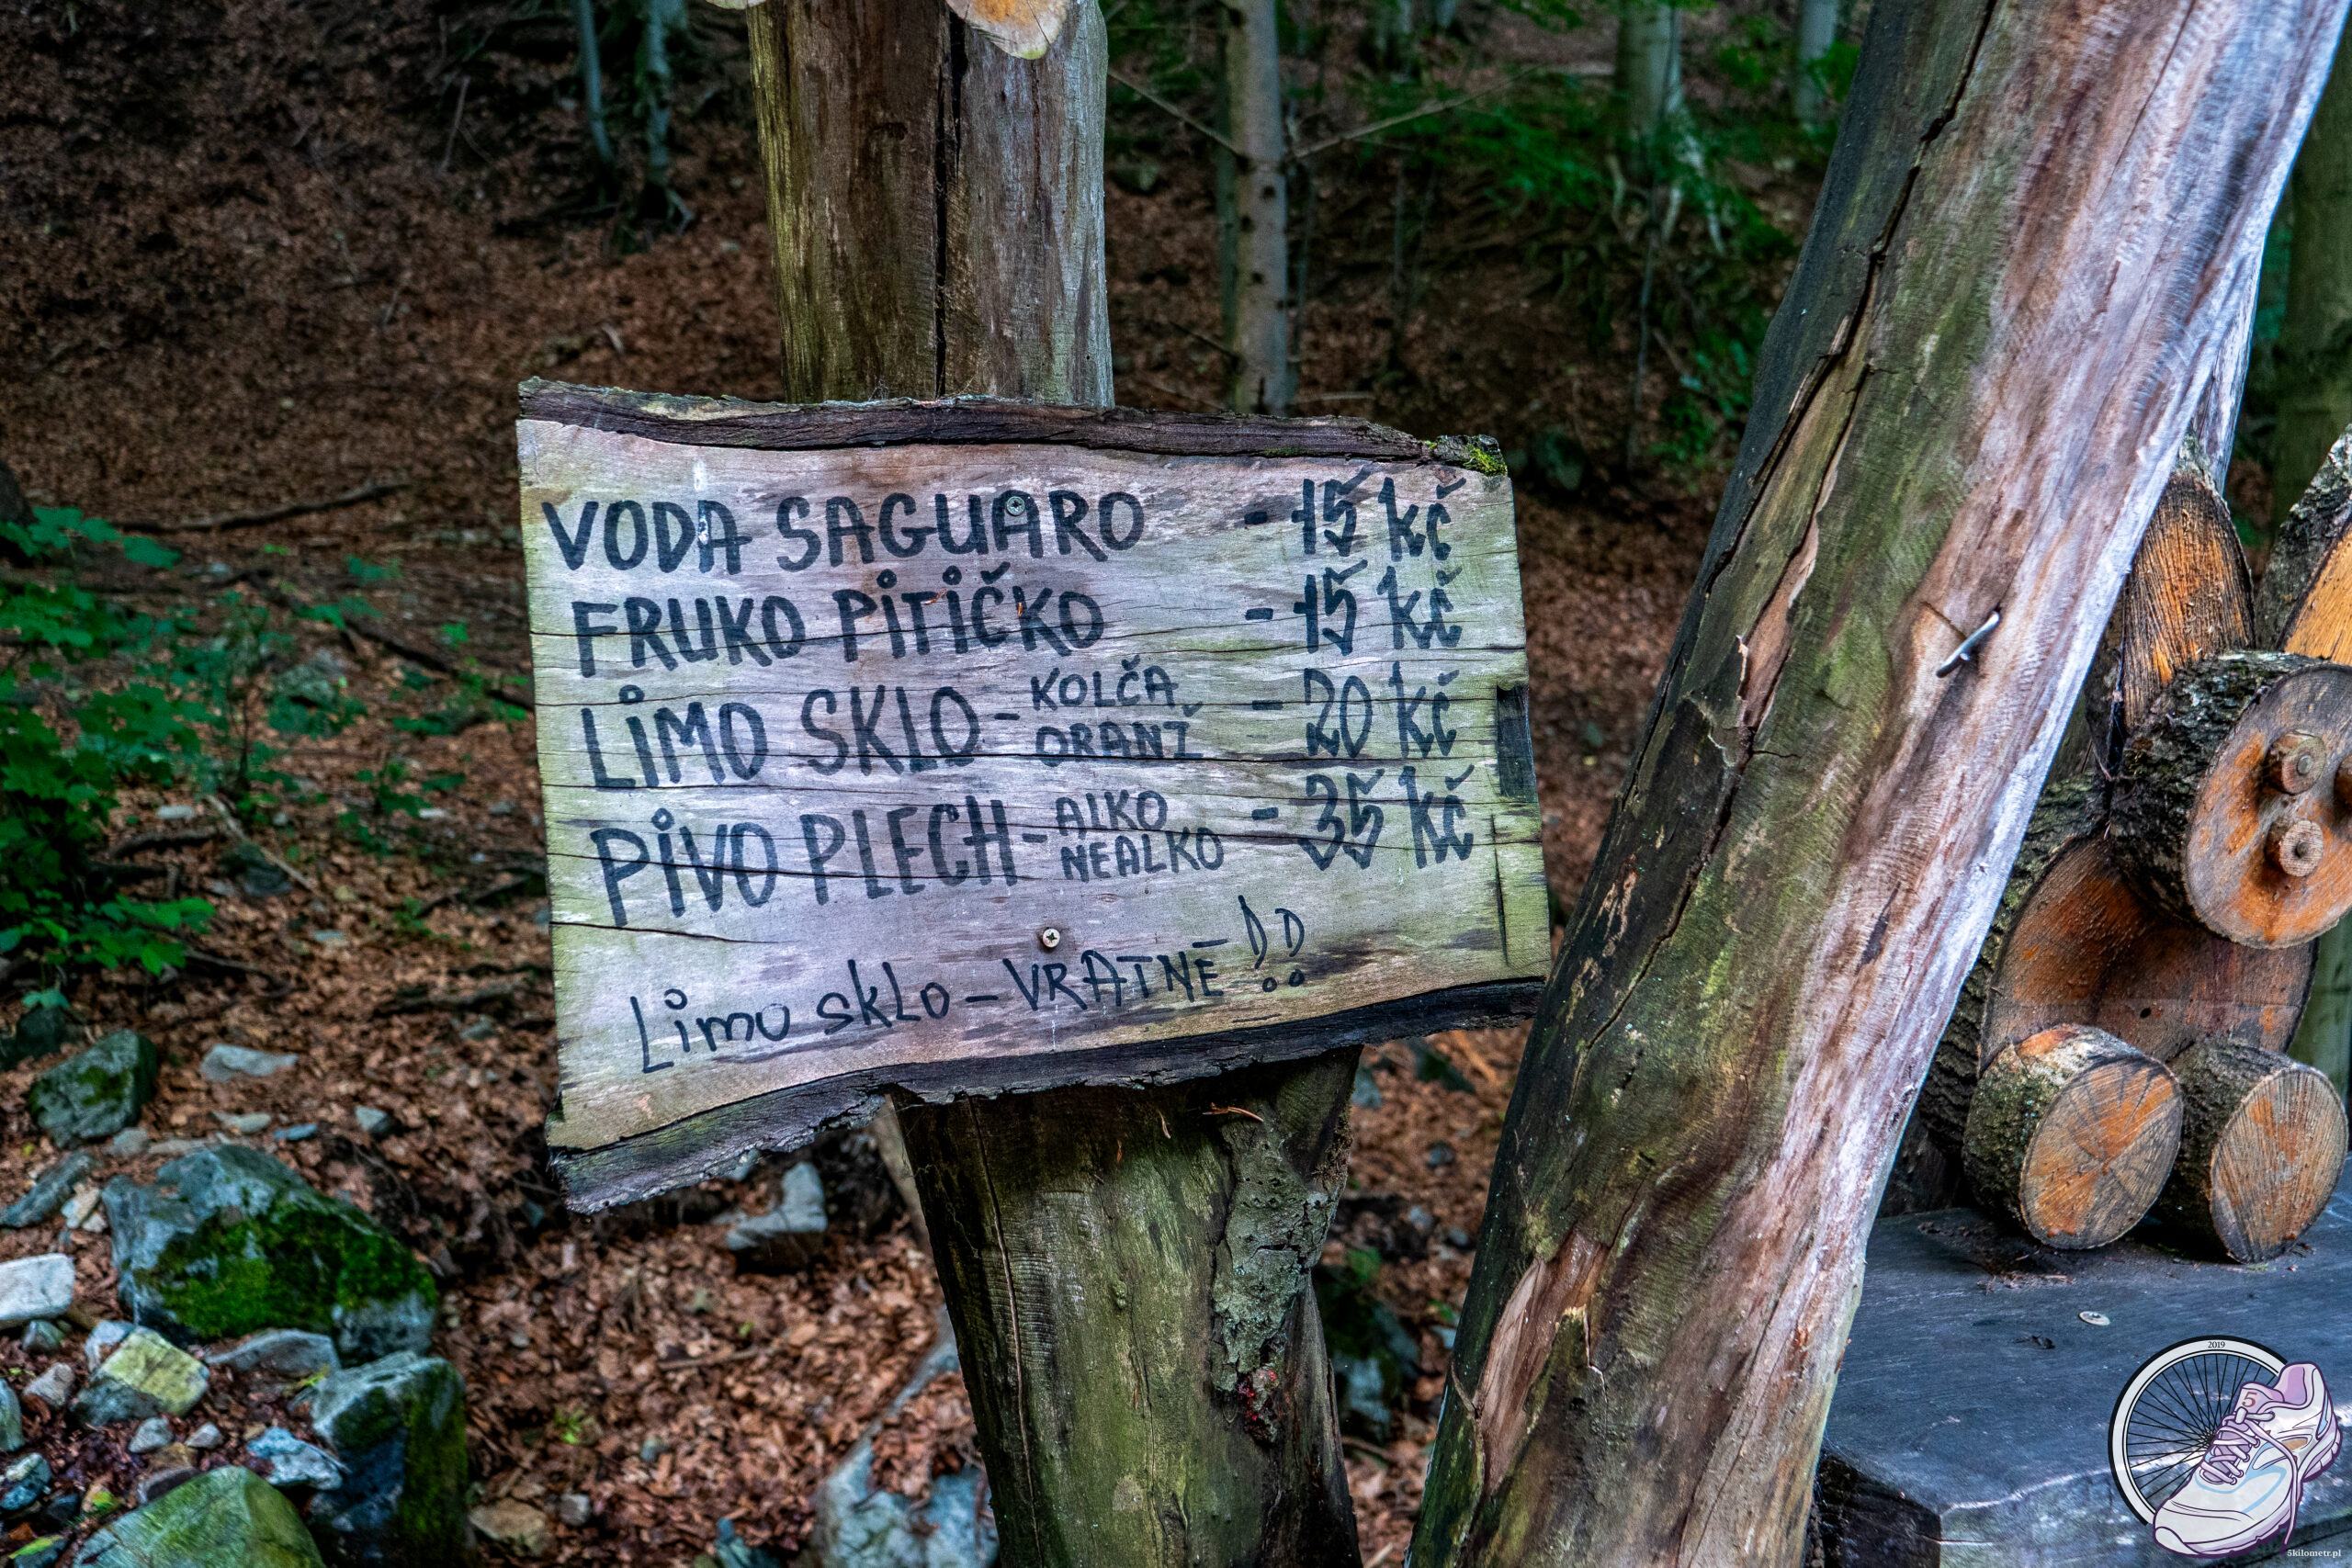 VODA SAGUARO - 15 kč
FRUKO PITIČKO - 15 kč
LIMO SKLO - KOLČA - 20 kč
ORANŽ
PIVO PLECH - ALKO - 35 kč
NEALKO
Limo sklo - VRATNÉ !!
2019
5
5kilometr.pl